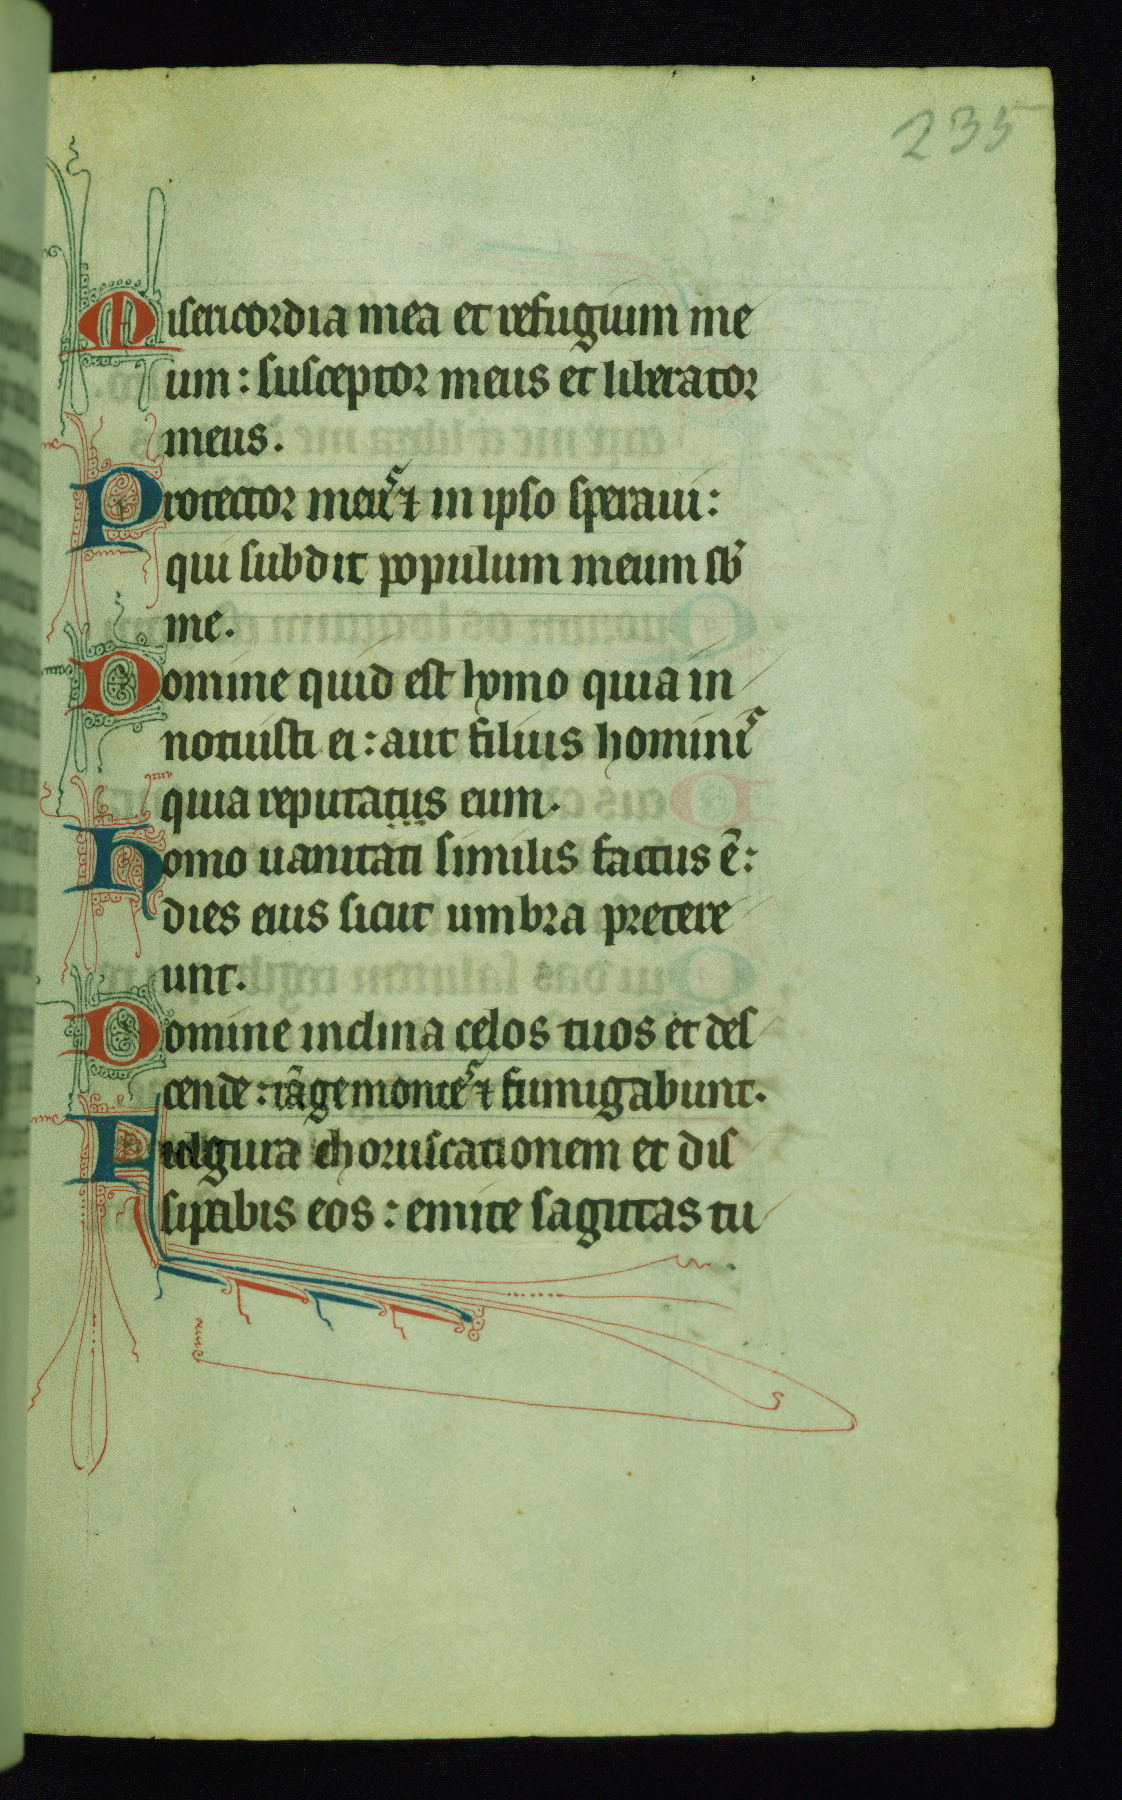 235
Misericordia mea et refugium me
um: susceptor meus et liberator
meus.
Protector meus et in ipso speraui:
qui subdit populum meum sb
me.
Domine quid est homo quia in
notuisti ei: aut filius hominis
quia reputatus eum.
homo uanitati similis factus ē:
dies eius sicut umbra pretere
unt.
Domine inclina celos tuos et des
cende: tāge montes et fumigabunt.
Fulgura choruscationem et dis
sipabis eos: emitte sagittas tu